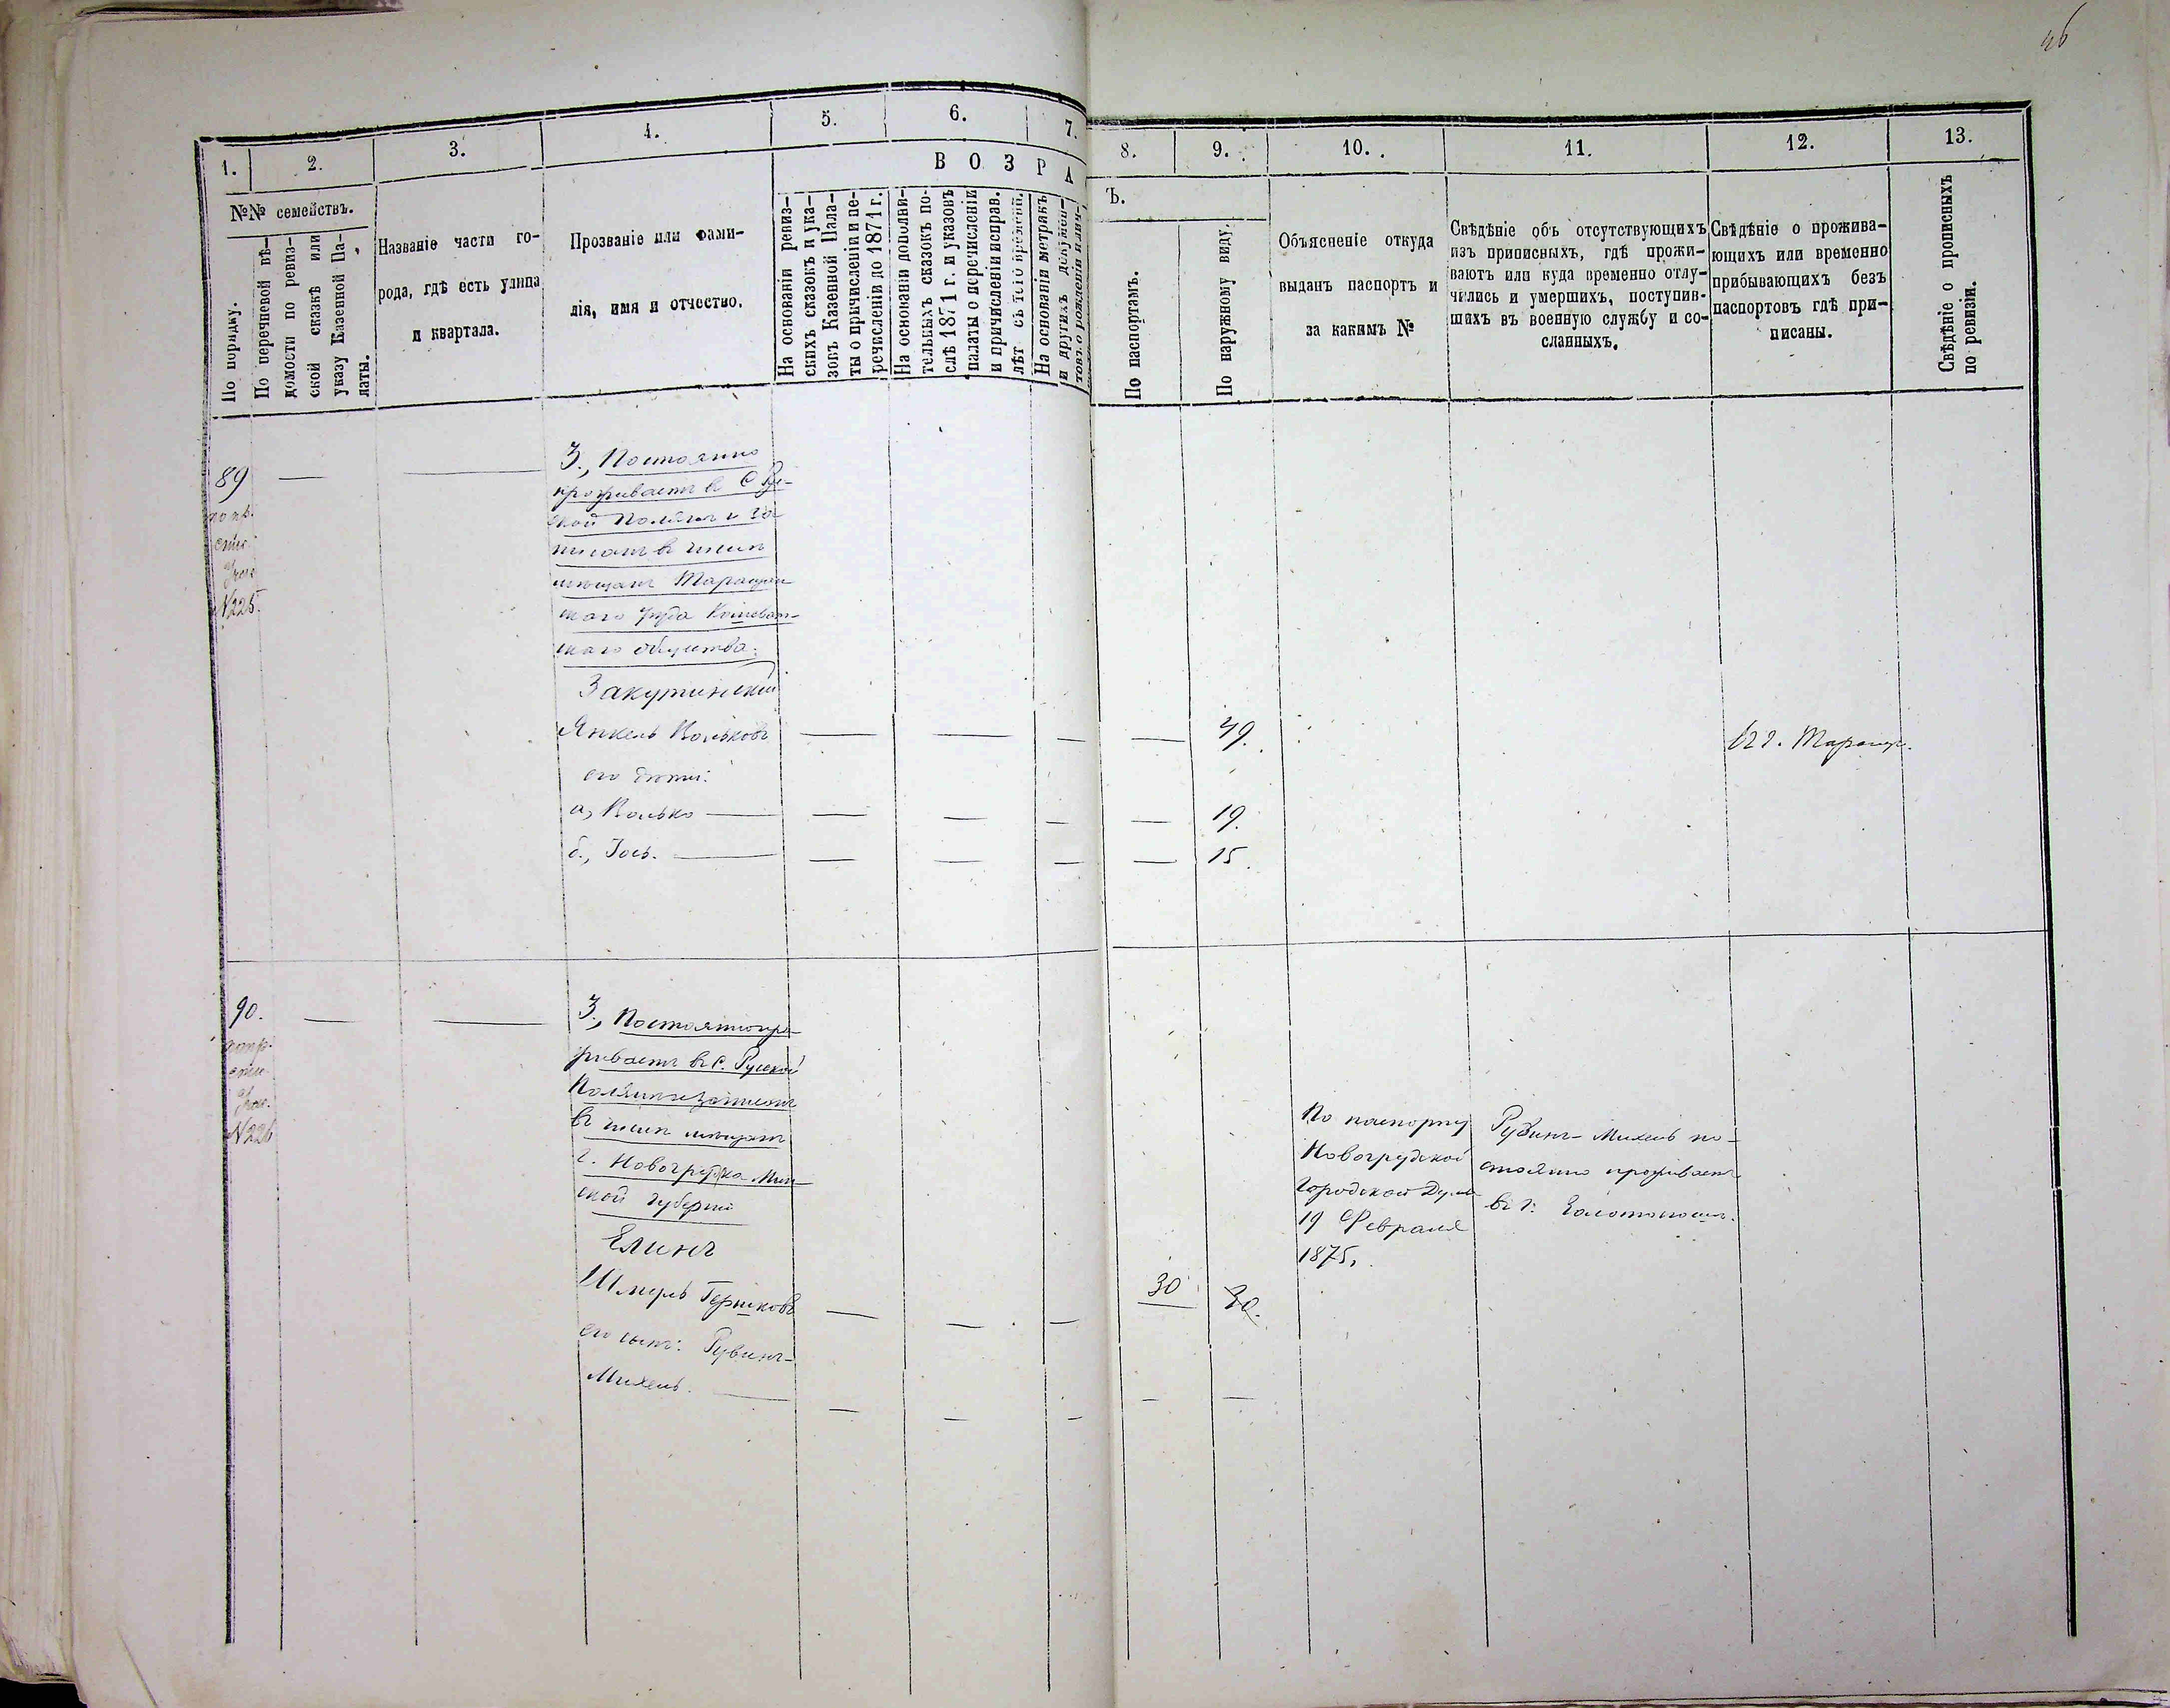 46
1.
2.
3.
4.
5.
6.
7.
8.
9.
10.
11.
12.
13.
№№ семействъ.
По порядку.
По перечневой вѣ-
домости по ревиз-
ской сказкѣ или
указу Казенной Па-
латы.
Названіе части го-
рода, гдѣ есть улица
и квартала.
Прозваніе или фами-
лія, имя и отчество.
ВОЗРА
Ъ.
На основаніи ревиз-
скихъ сказокъ и ука-
зовъ Казенной Пала-
ты о причисленіи и пе-
речисленіи до 1871 г.
На основаніи дополни-
тельныхъ сказокъ по-
слѣ 1871 г. и указовъ
палаты о перечисленіи
и причисленіи исправ.
лѣт съ того времени.
На основаніи метрикъ
и другихъ докумен-
товъ о рожденіи
По паспортамъ.
По наружному виду.
Объясненіе откуда
выданъ паспортъ и
за какимъ №
Свѣдѣніе объ отсутствующихъ
изъ приписныхъ, гдѣ прожи-
ваютъ или куда временно отлу-
чились и умершихъ, поступив-
шихъ въ военную службу и со-
сланныхъ.
Свѣдѣніе о прожива-
ющихъ или временно
прибывающихъ безъ
паспортовъ гдѣ при-
писаны.
Свѣдѣніе о прописныхъ
по ревизіи.
89
№225.
3., Постоянно
проживаетъ въ С. Рус-
ской Полянѣ и за
писанъ въ числѣ
мѣщанъ Таращан
скаго уѣзда Кошеват-
скаго общества:
Закутинскій
Янкель Вольковъ
49.
въ г. Таращ.
его дѣти:
а, Волько
19.
б., Іось.
15.
90.
№226
3., Постоянно про-
живаетъ въ С. Русской
Полянѣ и записанъ
въ числѣ мѣщанъ
г. Новогрудка Мин
ской губерніи
Елинъ
Шмуль Гершковъ
30
30.
его сынъ: Рувинъ-
Михель.
По паспорту
Новогрудской
Городской Думы
19 Февраля
1875,
Рувинъ-Михель по-
стоянно проживаетъ
въ г. Золотоношѣ.